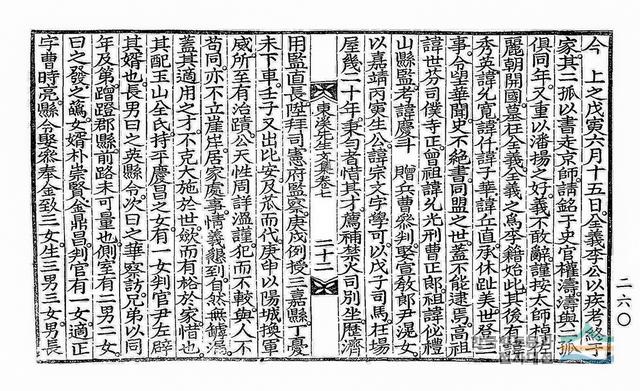 今 上之戊寅六月十五日全義李公以疾考終于
家其二孤以書走京師請銘于史官權濤濤與二孤
俱同年又重以潘揚之好義不敢辭謹按太師棹
麗朝開國墓在全義全義之爲李籍始此其後有
秀英諱允寬諱仟諱子華諱丘直承休趾美世登三
事令望華聞史不絶書同盟之世蓋不能逮焉高祖
諱世芬司僕寺正曾祖諱允光刑曹正郎祖諱佖禮
山縣監考諱慶斗 贈兵曹參判娶宣敎郎尹滉女
以嘉靖丙寅生公諱宗文字學可以戊子司馬在場
屋幾二十年秉勻者惜其才薦補禁火司別坐歷濟
東溪先生文集卷七 二十二
用監直長陞拜司憲府監察庚戌例授三嘉縣丁憂
未下車壬子又出比安及瓜而代庚申以陽城換軍
威所至有治蹟公天性周詳溫謹犯而不較與人不
苟同亦不立崖岸居家處事情義懇到自然無罅漏
蓋其適用之才不克大施於世斂而有裕於家惜也
其配玉山全氏持平慶昌之女有一女判官尹左辟
其婿也長男曰之英縣令次曰之華察訪兄弟以同
年及第蹭蹬郡縣前路未可量也側室有二男二女
曰之發之女婿朴崇賢金鼎昌判官有一女適正
字曹時亮縣令娶參奉金致三女生三男三女男長
二六〇